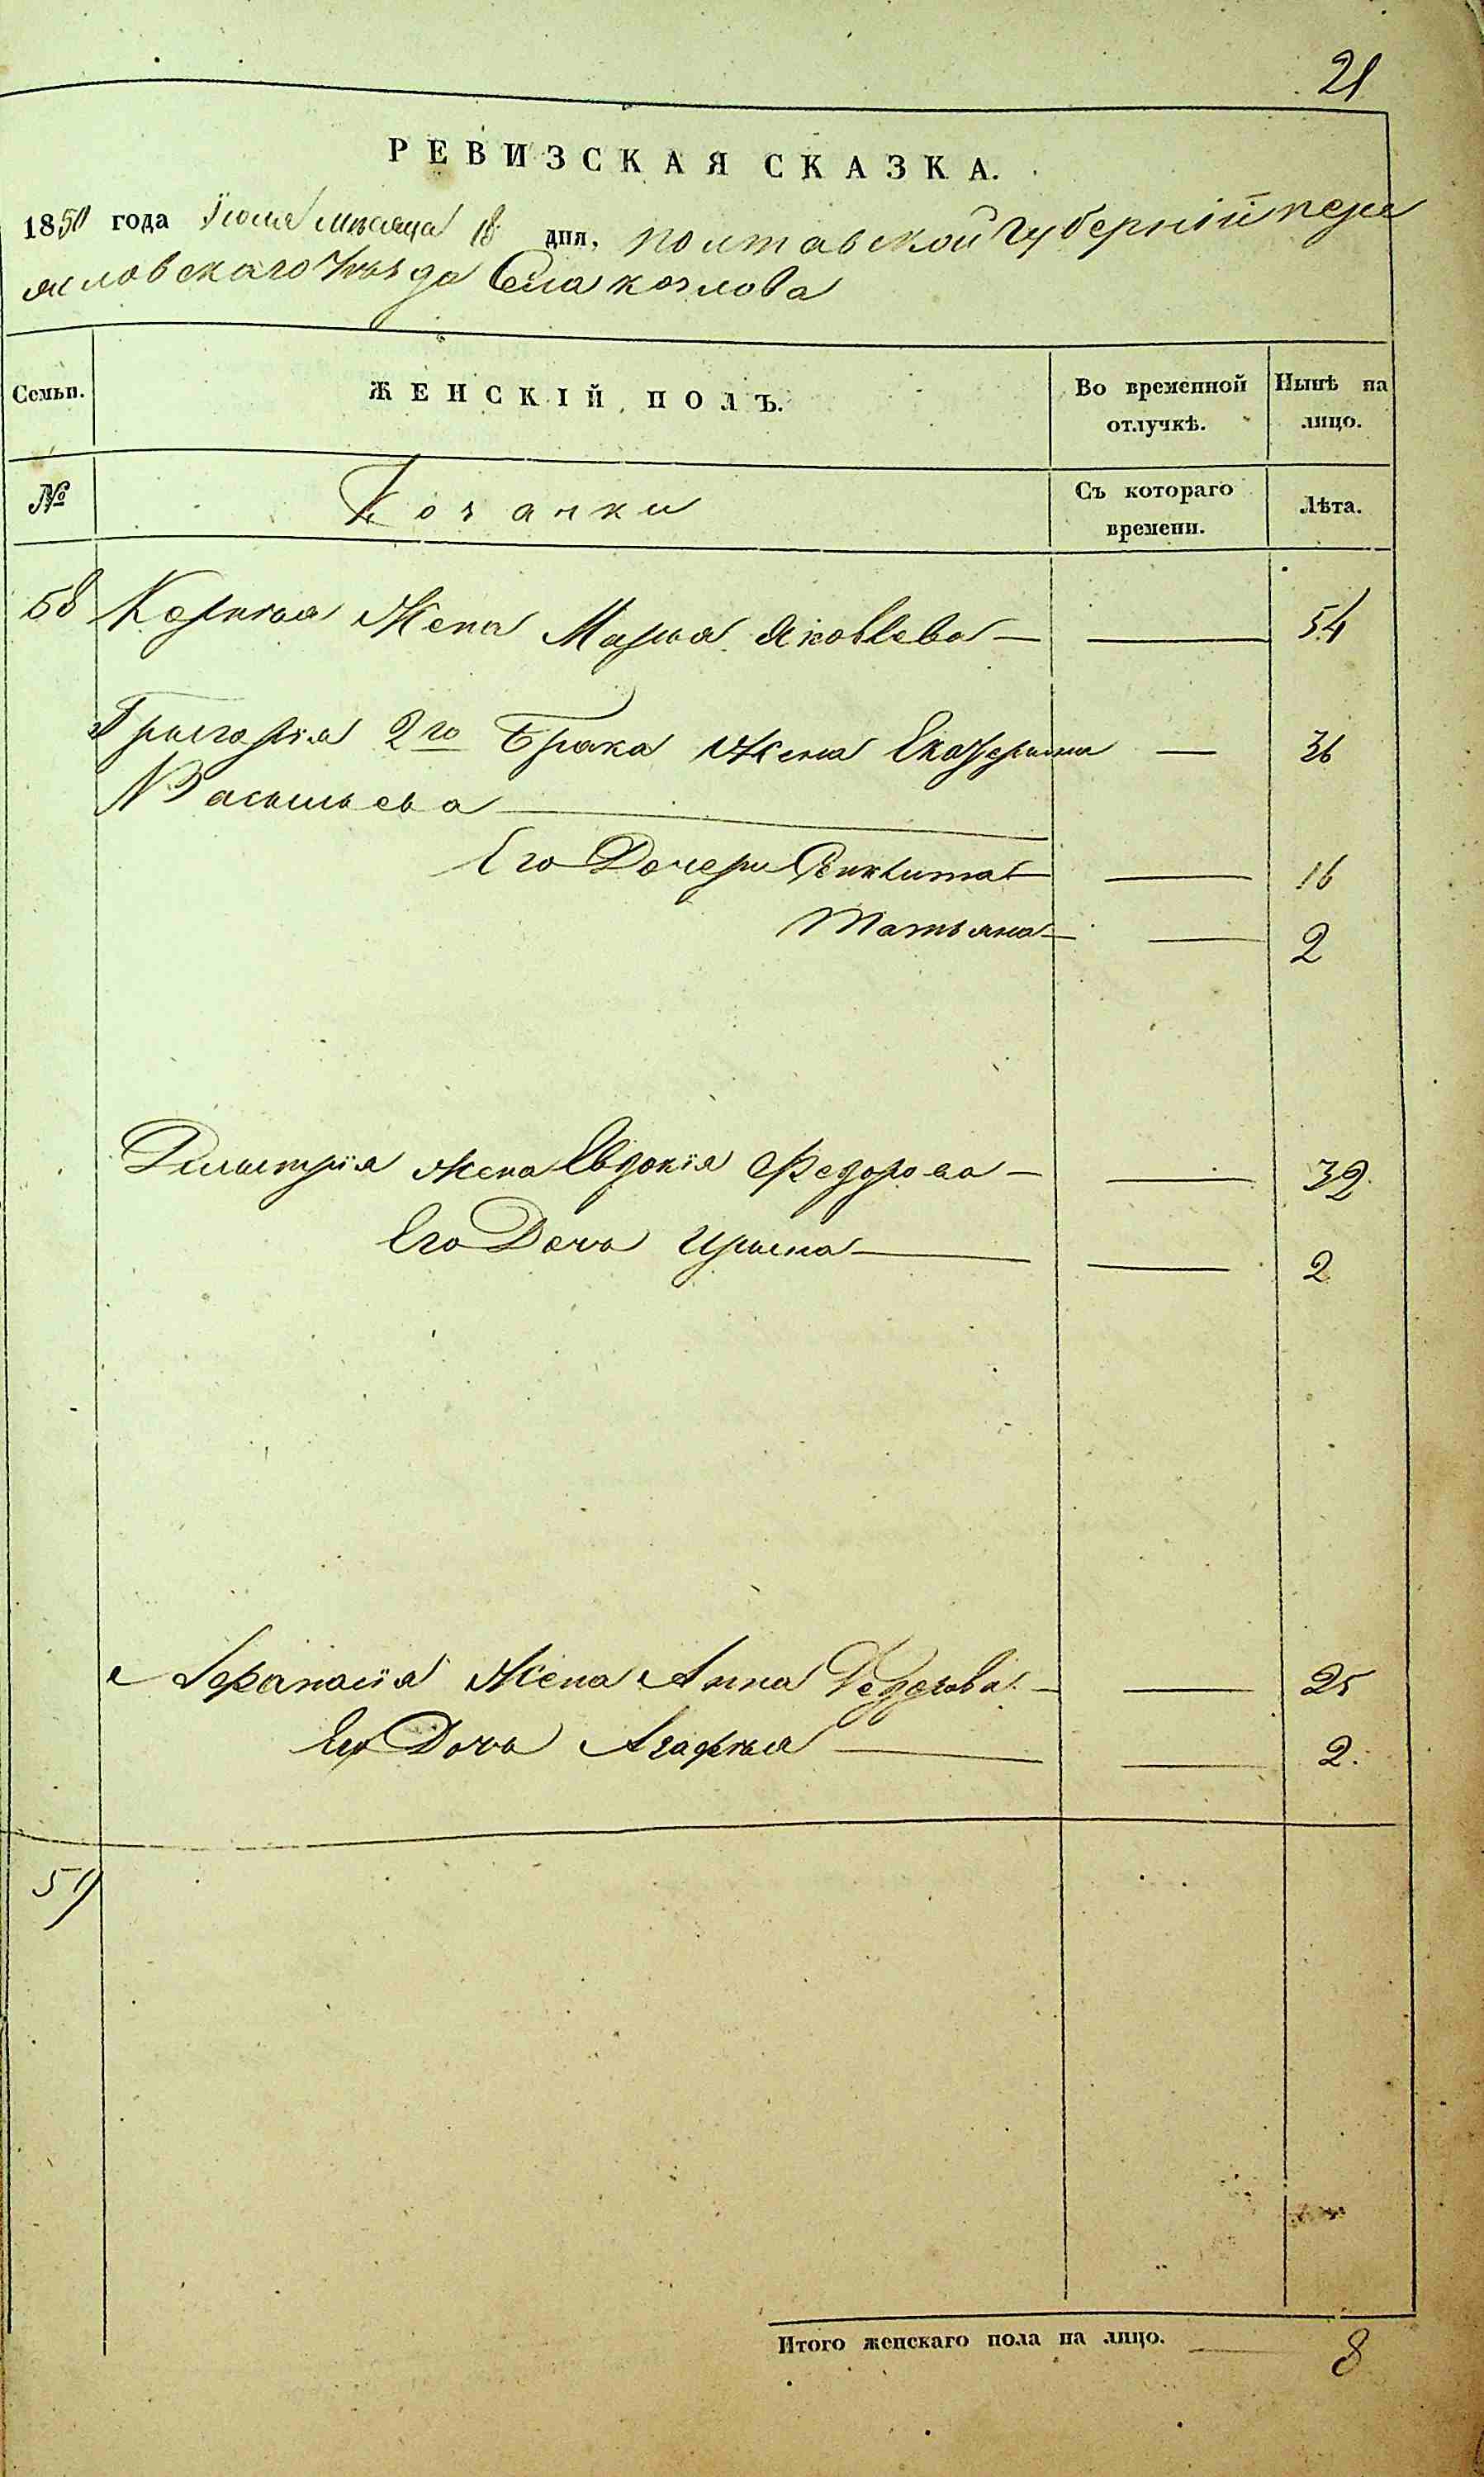 21
РЕВИЗСКАЯ СКАЗКА.
1850 года Іюля мѣсяца 18 дня, Полтавской Губерніи Пере
яславскаго Уѣзда Села козлова
Семьи. ЖЕНСКІЙ ПОЛЪ. Во временной отлучкѣ. Нынѣ на лицо.
№ Козачки Съ котораго времени. Лѣта.
58 Корнѣя Жена Марья Яковлева — — 54
Григорія 2го Брака Жена Екатерина — 36
Васильева
Его Дочери — — 16
Татьяна — — 2
Димитрія жена Евдокія Федорова — — 32
Его Дочь Ирина — — 2
Афанасія Жена Анна Федорова — — 25
Его Дочь Агафья — — 2
59
Итого женскаго пола на лицо. — 8